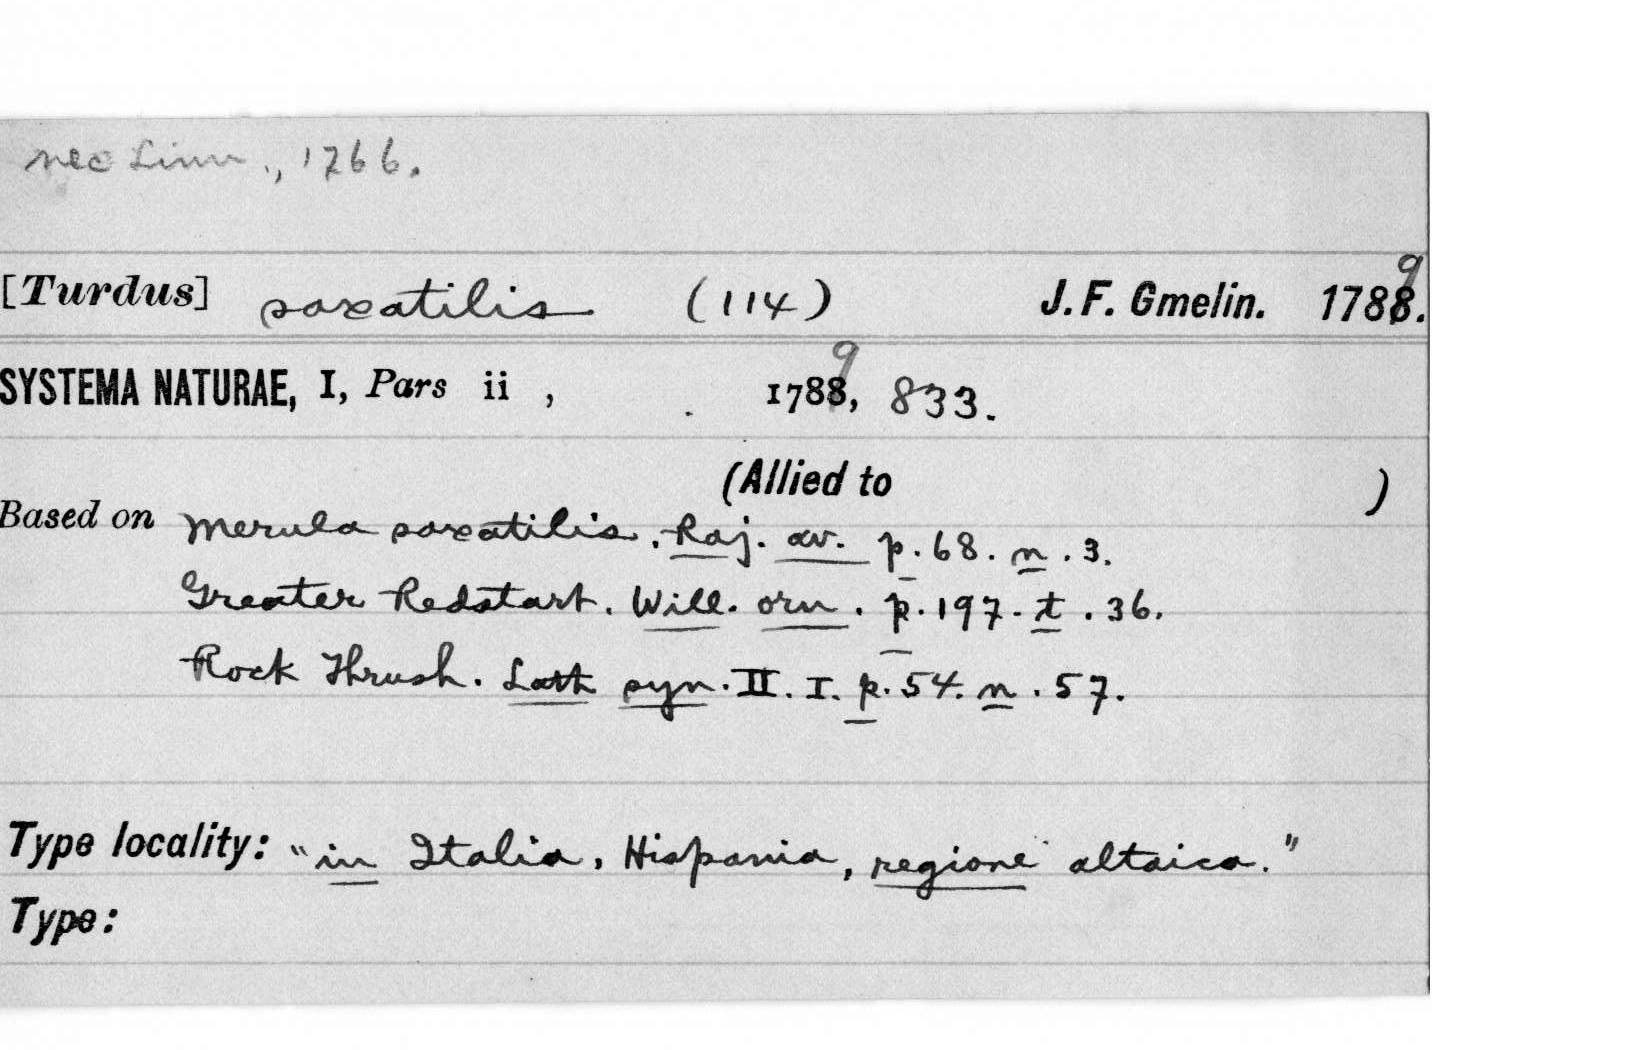 nec Linn., 1766.
[Turdus] saxatilis (114) J. F. Gmelin. 1789.
SYSTEMA NATURAE, I, Pars ii , . 1789, 833.
(Allied to )
Based on Merula saxatilis. Raj. av. p. 68. n. 3.
Greater Redstart. Will. orn. p. 197. t. 36.
Rock Thrush. Lath syn. II. I. p. 54. n. 57.
Type locality: "in Italia, Hispania, regione altaica."
Type: